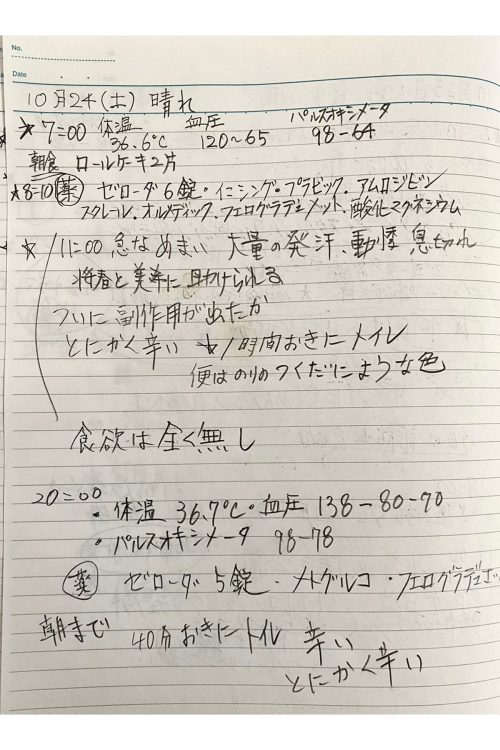 No.
Date
10月24(土) 晴れ
★7:00 体温 血圧 パルスオキシメータ
36.6℃ 120〜65 98-64
朝食 ロールケーキ2片
★8:10 薬 ゼローダ6錠・イニシング・プラビック・アムロジピン
スクレコレ・オルメディック・フェログラデュメット・酸化マグネシウム
★ 11:00 急なめまい 大量の発汗、動悸 息切れ
将春と美幸に助けられる
ついに副作用が出たか
とにかく辛い ★1時間おきにトイレ
便はのりのつくだにような色
食欲は全く無し
20:00
・体温 36.7℃・血圧 138-80-70
・パルスオキシメータ 98-78
薬 ゼローダ5錠・メトグルコ・フェログラデュ
朝まで 40分おきにトイレ 辛い
とにかく辛い